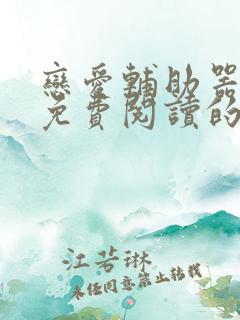 戀愛輔助器
免費閱讀的
江若琳
未經同意禁止轉載